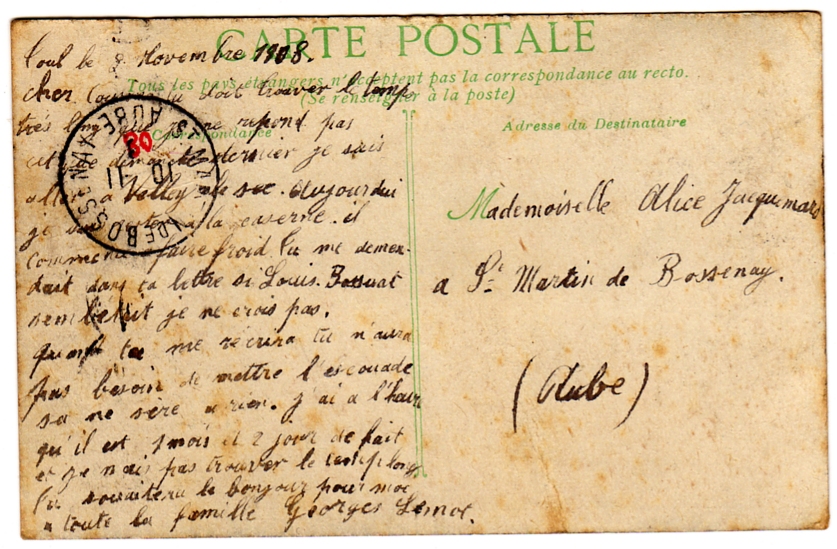 CARTE POSTALE
Tous les pays étrangers n'acceptent pas la correspondance au recto.
(Se renseigner à la poste)
Correspondance
Adresse du Destinataire
Toul le 8 Novembre 1908.
cher Cousine tu doit trouver le temp
très long que je ne repond pas
dimanche dernier je suis
aller a Valley le sec. Aujourdui
je suis à la caserne. il
commence a faire froid. Tu me demen-
dait dans ta lettre si Louis. Bossuat
sembétait je ne crois pas.
quant tu me recrira tu n'aura
pas besoin de mettre l'escouade
sa ne sère a rien. j'ai a l'heure
qu'il est 1 mois et 2 jour de fait
et je nais pas trouver le temp long
Tu souaitera le bonjour pour moi
a toute la famille Georges Lemoc.
Mademoiselle Alice Jacquemard
a St Martin de Bossenay.
(Aube)
ST MARTIN DE BOSSENAY
AUBE
10 11
08